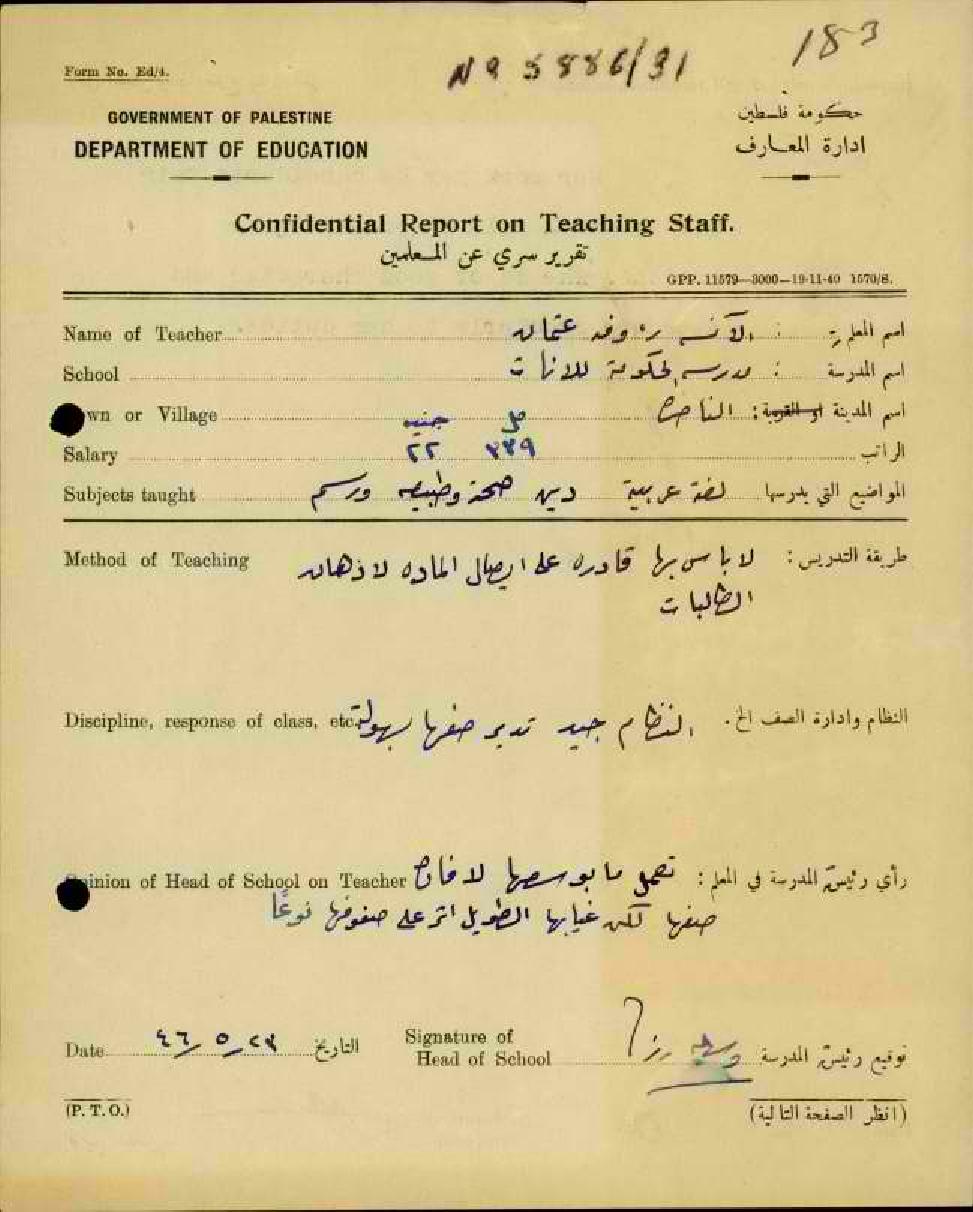 183
Nº 5886/31
Form No. Ed/4.
GOVERNMENT OF PALESTINE
حكومة فلسطين
DEPARTMENT OF EDUCATION
ادارة المعارف
Confidential Report on Teaching Staff.
تقرير سري عن المعلمين
GPP. 11579—3000—19-11-40 1570/S.
Name of Teacher الآنسه عثمان : اسم المعلمة
School مدرسة الحكومة للاناث : اسم المدرسة
Town or Village الناصرة : اسم المدينة او القرية
مل جنيه
Salary ٣٣٩ ٢٢ الراتب
Subjects taught لغة عربية دين صحة وطبيعه ورسم المواضيع التي يدرسها
Method of Teaching لا باس بها قادره على ايصال الماده لاذهان طريقة التدريس :
الطالبات
Discipline, response of class, etc. النظام جيد تدير صفها بسهولة النظام وادارة الصف الخ.
Opinion of Head of School on Teacher تعمل ما بوسعها لافادة رأي رئيسة المدرسة في المعلم :
صفها لكن غيابها الطويل اثر على صفوفها نوعًا
Date ٢٣/٥/٤٦ التاريخ
Signature of
Head of School توقيع رئيسة المدرسة
(P. T. O.)
(انظر الصفحة التالية)